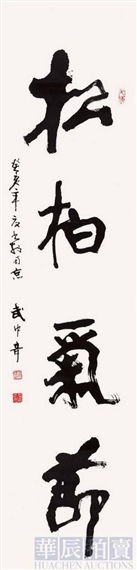 松柏气节
癸亥年夏
武中奇
華辰拍賣
HUACHEN AUCTIONS